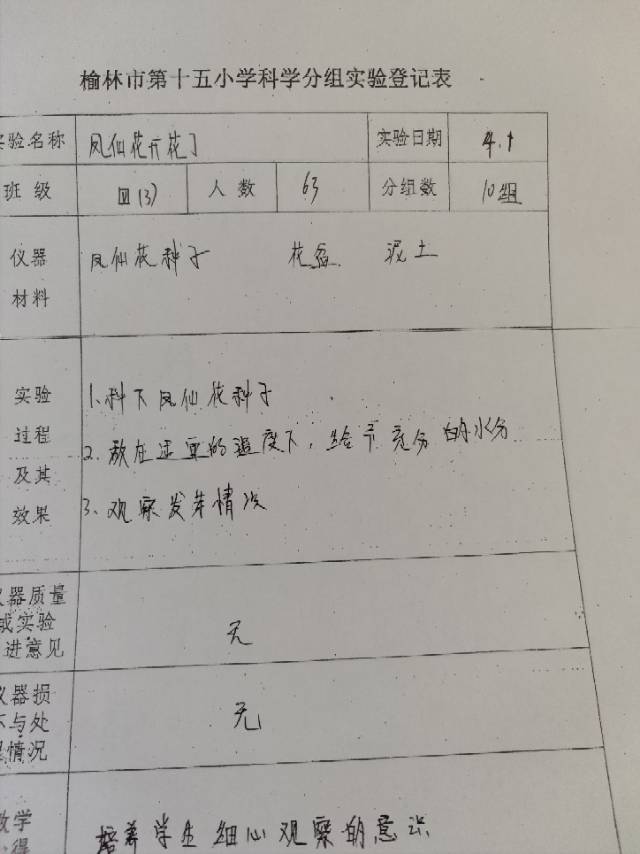 榆林市第十五小学科学分组实验登记表
实验名称 凤仙花开花了 实验日期 4.1
班级 四(3) 人数 63 分组数 10组
仪器 凤仙花种子 花盆 泥土
材料
实验 1.种下凤仙花种子
过程 2.放在适宜的温度下,给予充分的水分
及其
效果 3.观察发芽情况
器质量
或实验
进意见 无
仪器损
坏与处 无
理情况
教学 培养学生细心观察的意识
得